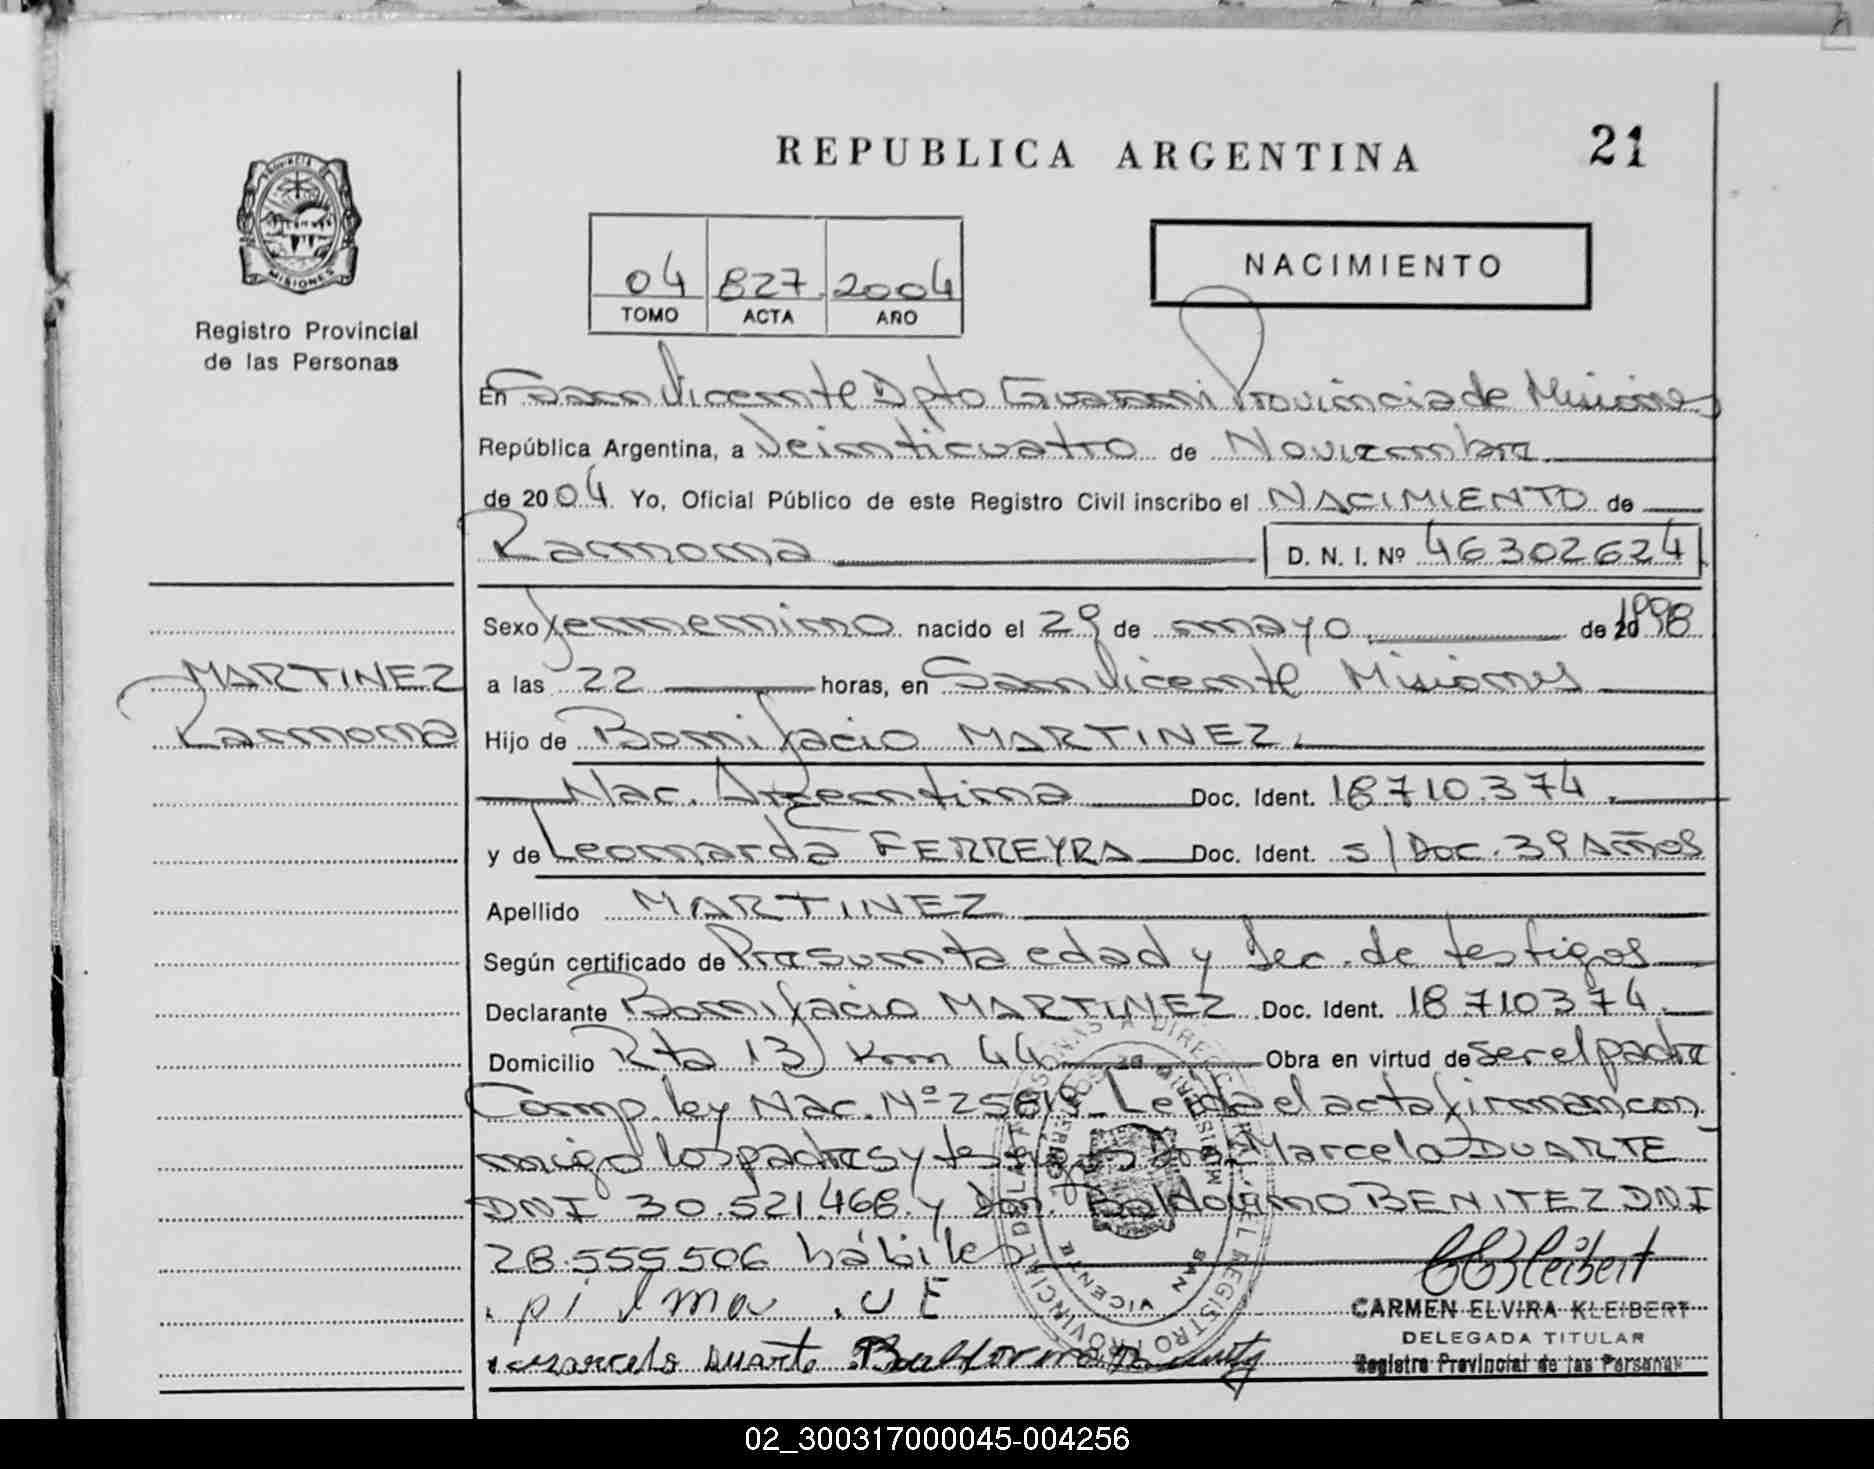 REPUBLICA ARGENTINA
21
PROVINCIA DE
MISIONES
Registro Provincial
de las Personas
04 827 2004
TOMO ACTA AÑO
NACIMIENTO
En San Vicente Dpto Guarani Provincia de Misiones
República Argentina, a Veinticuatro de Noviembre
de 2004 Yo, Oficial Público de este Registro Civil inscribo el NACIMIENTO de
Ramona D. N. I. Nº 46302624
Sexo femenino nacido el 29 de mayo de 20 1998
a las 22 horas, en San Vicente Misiones
MARTINEZ
Ramona
Hijo de Bonifacio MARTINEZ.
Nac. Argentina Doc. Ident. 18710.374.
y de Leonarda FERREYRA Doc. Ident. s/Doc. 39 Años
Apellido MARTINEZ
Según certificado de Presunta edad y Dec. de testigos
Declarante Bonifacio MARTINEZ Doc. Ident. 18710374.
Domicilio Rta 13 Km 44 Obra en virtud de ser el padre
Comp. ley Nac. Nº 25819 Leida el acta firman con
migo los padres y testigos Don Marcelo DUARTE
DNI 30.521.468 y don Baldovino BENITEZ DNI
28.555.506 hábiles
Marcelo Duarte
CARMEN ELVIRA KLEIBERT
DELEGADA TITULAR
Registro Provincial de las Personas
SAN VICENTE
02_300317000045-004256